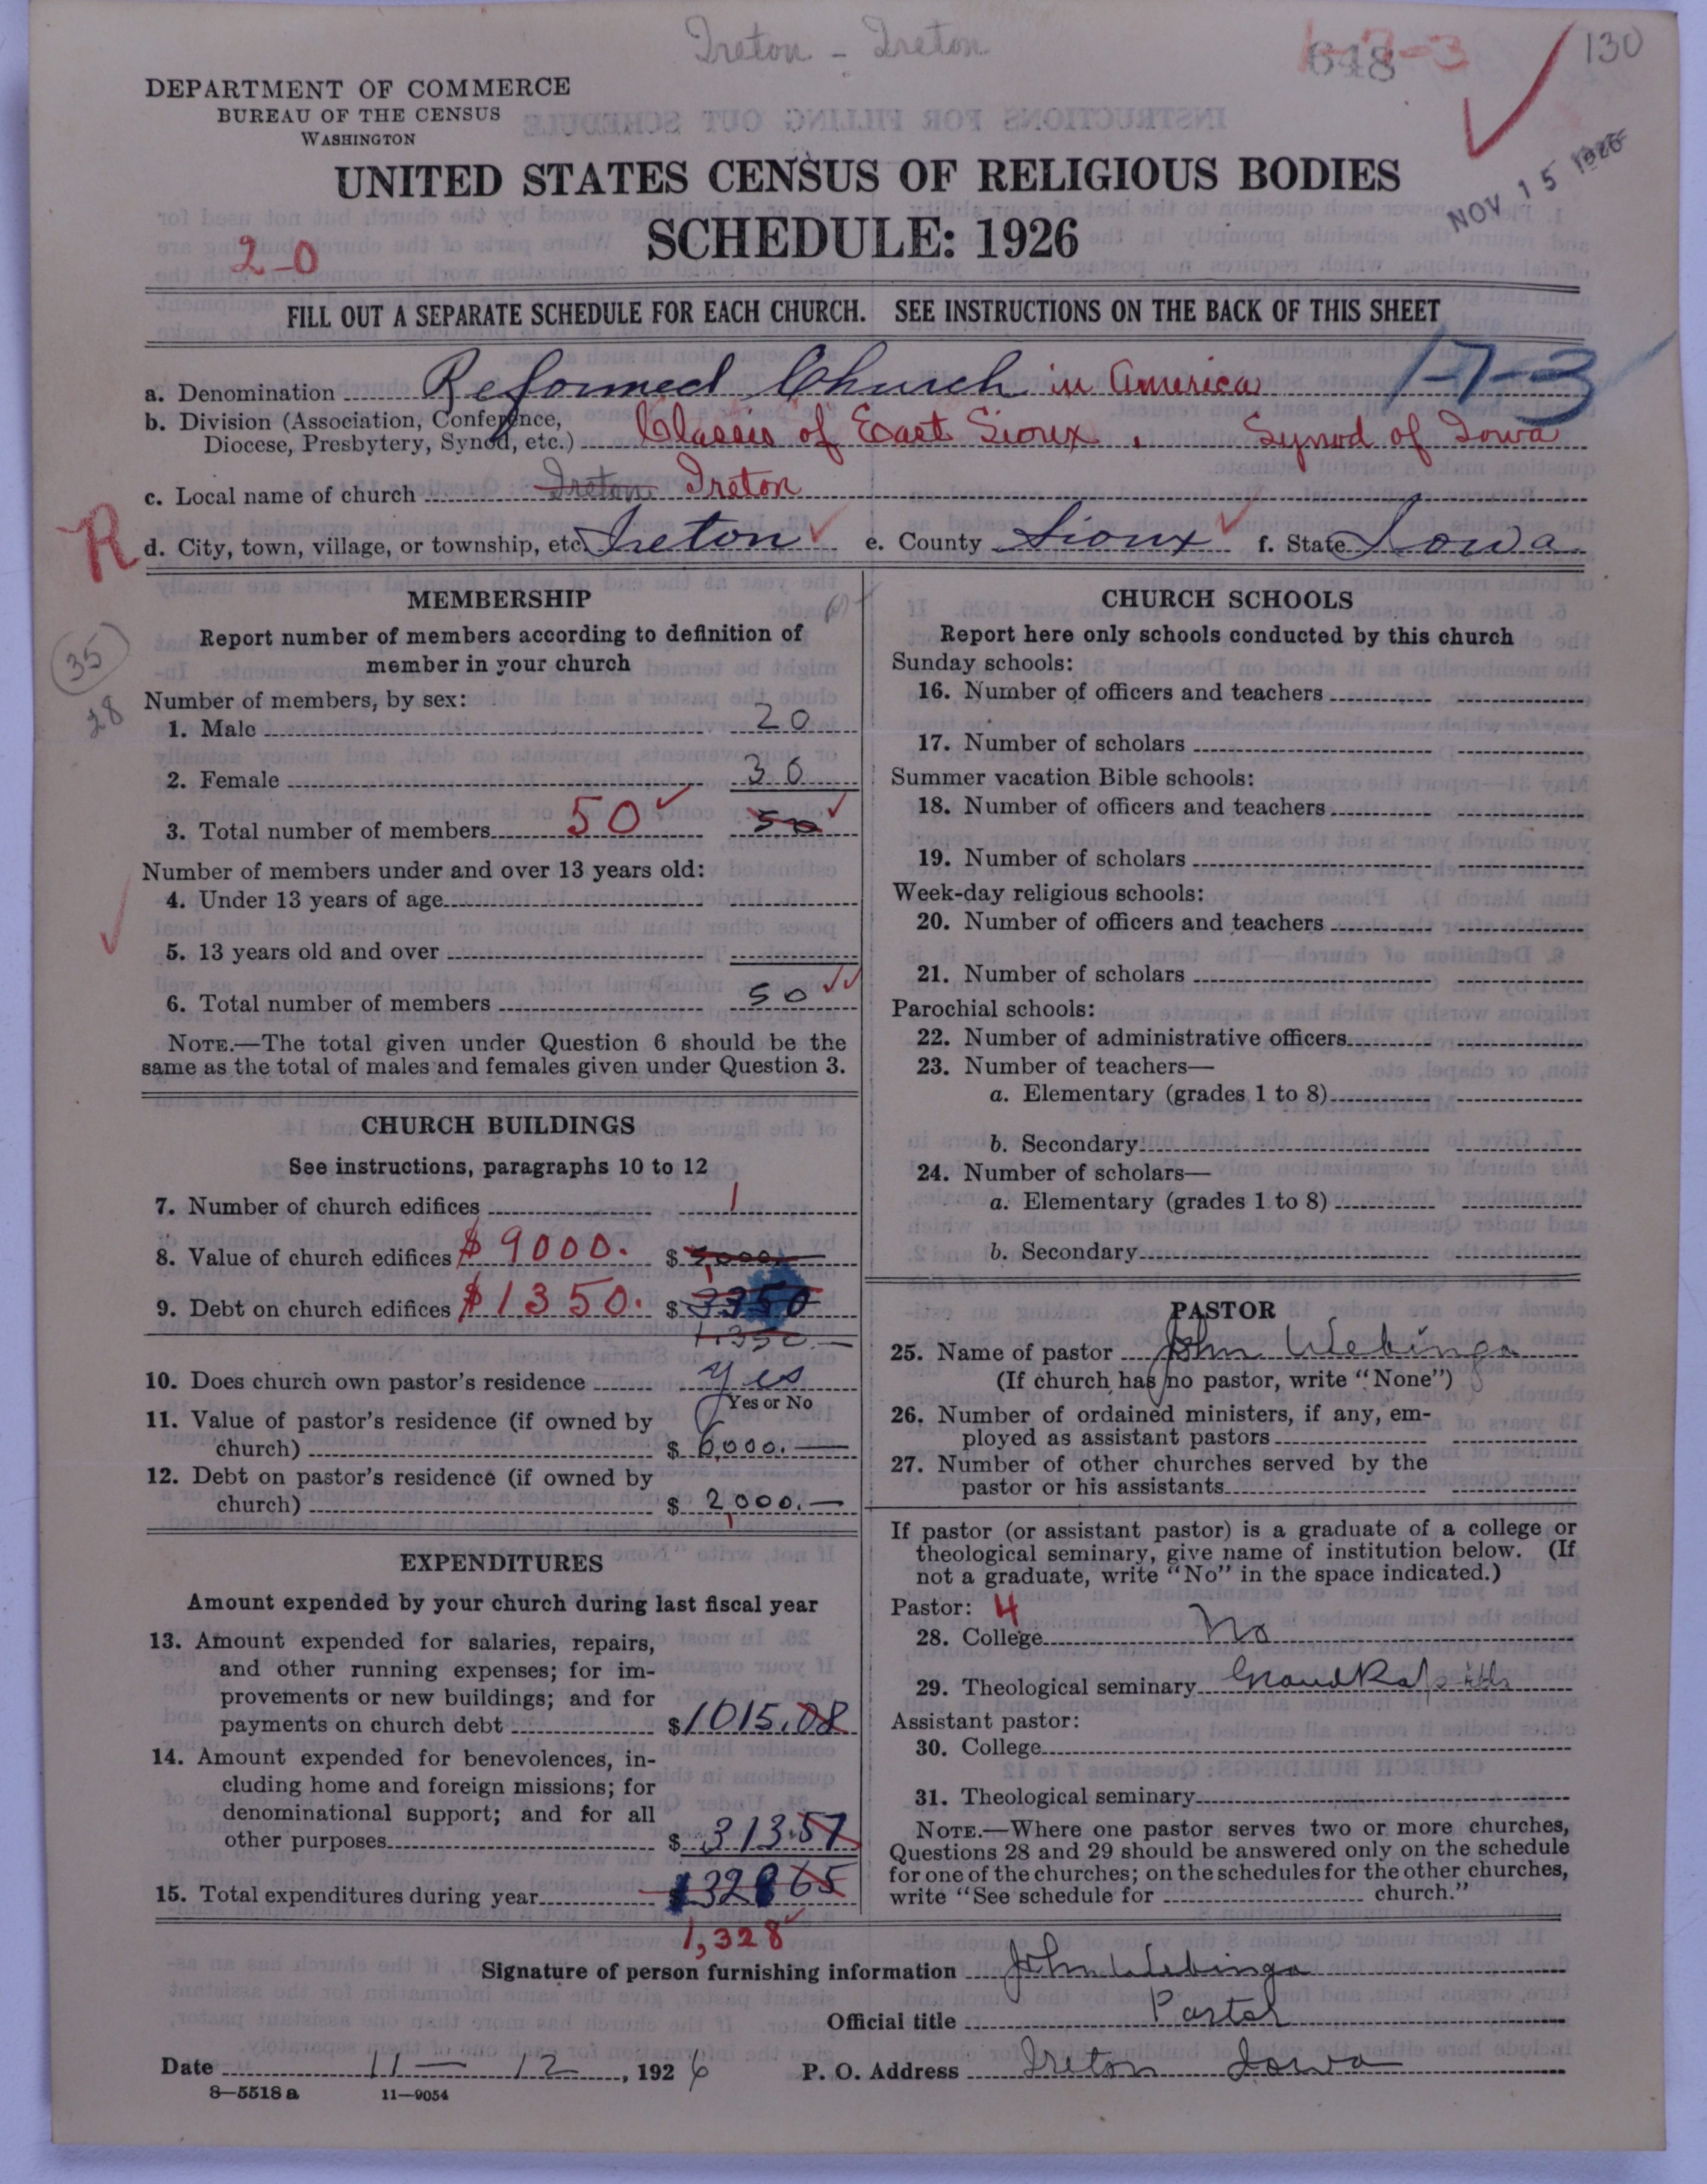 Ireton - Ireton
648
1-7-3
130
DEPARTMENT OF COMMERCE
BUREAU OF THE CENSUS
WASHINGTON
NOV 15 1926
UNITED STATES CENSUS OF RELIGIOUS BODIES
SCHEDULE: 1926
2-0
FILL OUT A SEPARATE SCHEDULE FOR EACH CHURCH. SEE INSTRUCTIONS ON THE BACK OF THIS SHEET
a. Denomination Reformed Church in America 1-7-3
b. Division (Association, Conference,
Diocese, Presbytery, Synod, etc.) Classis of East Sioux, Synod of Iowa
c. Local name of church Ireton Ireton
R
d. City, town, village, or township, etc. Ireton e. County Sioux f. State Iowa
MEMBERSHIP
Report number of members according to definition of
member in your church
35
28
Number of members, by sex:
1. Male 20
2. Female 30
3. Total number of members 50 50
Number of members under and over 13 years old:
4. Under 13 years of age
5. 13 years old and over
6. Total number of members 50
NOTE.—The total given under Question 6 should be the
same as the total of males and females given under Question 3.
CHURCH BUILDINGS
See instructions, paragraphs 10 to 12
7. Number of church edifices 1
8. Value of church edifices $9000. $
9. Debt on church edifices $1350. $3350
1.350.—
10. Does church own pastor's residence yes
Yes or No
11. Value of pastor's residence (if owned by
church) $ 6000.—
12. Debt on pastor's residence (if owned by
church) $ 2,000.—
EXPENDITURES
Amount expended by your church during last fiscal year
13. Amount expended for salaries, repairs,
and other running expenses; for im-
provements or new buildings; and for
payments on church debt $1015.08
14. Amount expended for benevolences, in-
cluding home and foreign missions; for
denominational support; and for all
other purposes $ 313.57
15. Total expenditures during year $1328 65
1,328
CHURCH SCHOOLS
Report here only schools conducted by this church
Sunday schools:
16. Number of officers and teachers
17. Number of scholars
Summer vacation Bible schools:
18. Number of officers and teachers
19. Number of scholars
Week-day religious schools:
20. Number of officers and teachers
21. Number of scholars
Parochial schools:
22. Number of administrative officers
23. Number of teachers—
a. Elementary (grades 1 to 8)
b. Secondary
24. Number of scholars—
a. Elementary (grades 1 to 8)
b. Secondary
PASTOR
25. Name of pastor John Webinga
(If church has no pastor, write "None")
26. Number of ordained ministers, if any, em-
ployed as assistant pastors
27. Number of other churches served by the
pastor or his assistants
If pastor (or assistant pastor) is a graduate of a college or
theological seminary, give name of institution below. (If
not a graduate, write "No" in the space indicated.)
Pastor: 4
28. College No
29. Theological seminary Grand Rapids
Assistant pastor:
30. College
31. Theological seminary
NOTE.—Where one pastor serves two or more churches,
Questions 28 and 29 should be answered only on the schedule
for one of the churches; on the schedules for the other churches,
write "See schedule for church."
Signature of person furnishing information John Webinga
Official title Pastor
Date 11—12, 1926 P. O. Address Ireton Iowa
8-5518 a 11-9054